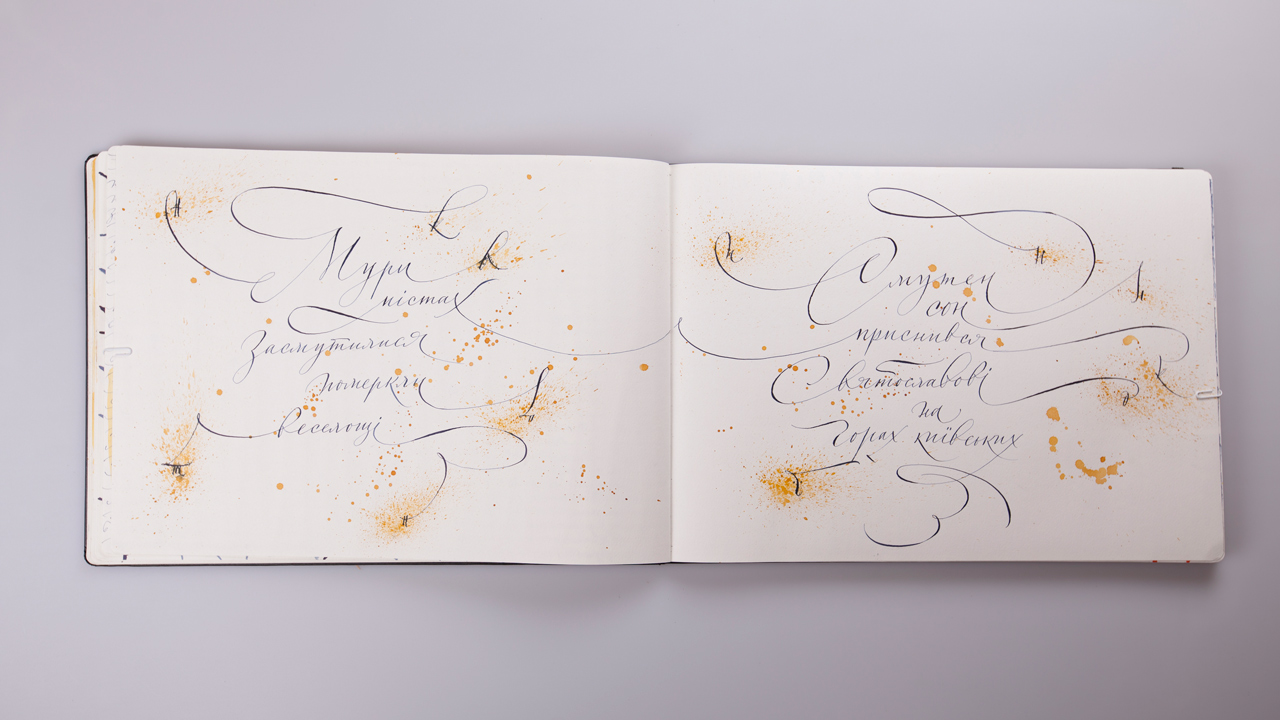 Мури
міста
Засмутилися
померкли
веселощі
Смутен
сон
приснився
Святославові
на
горах київських